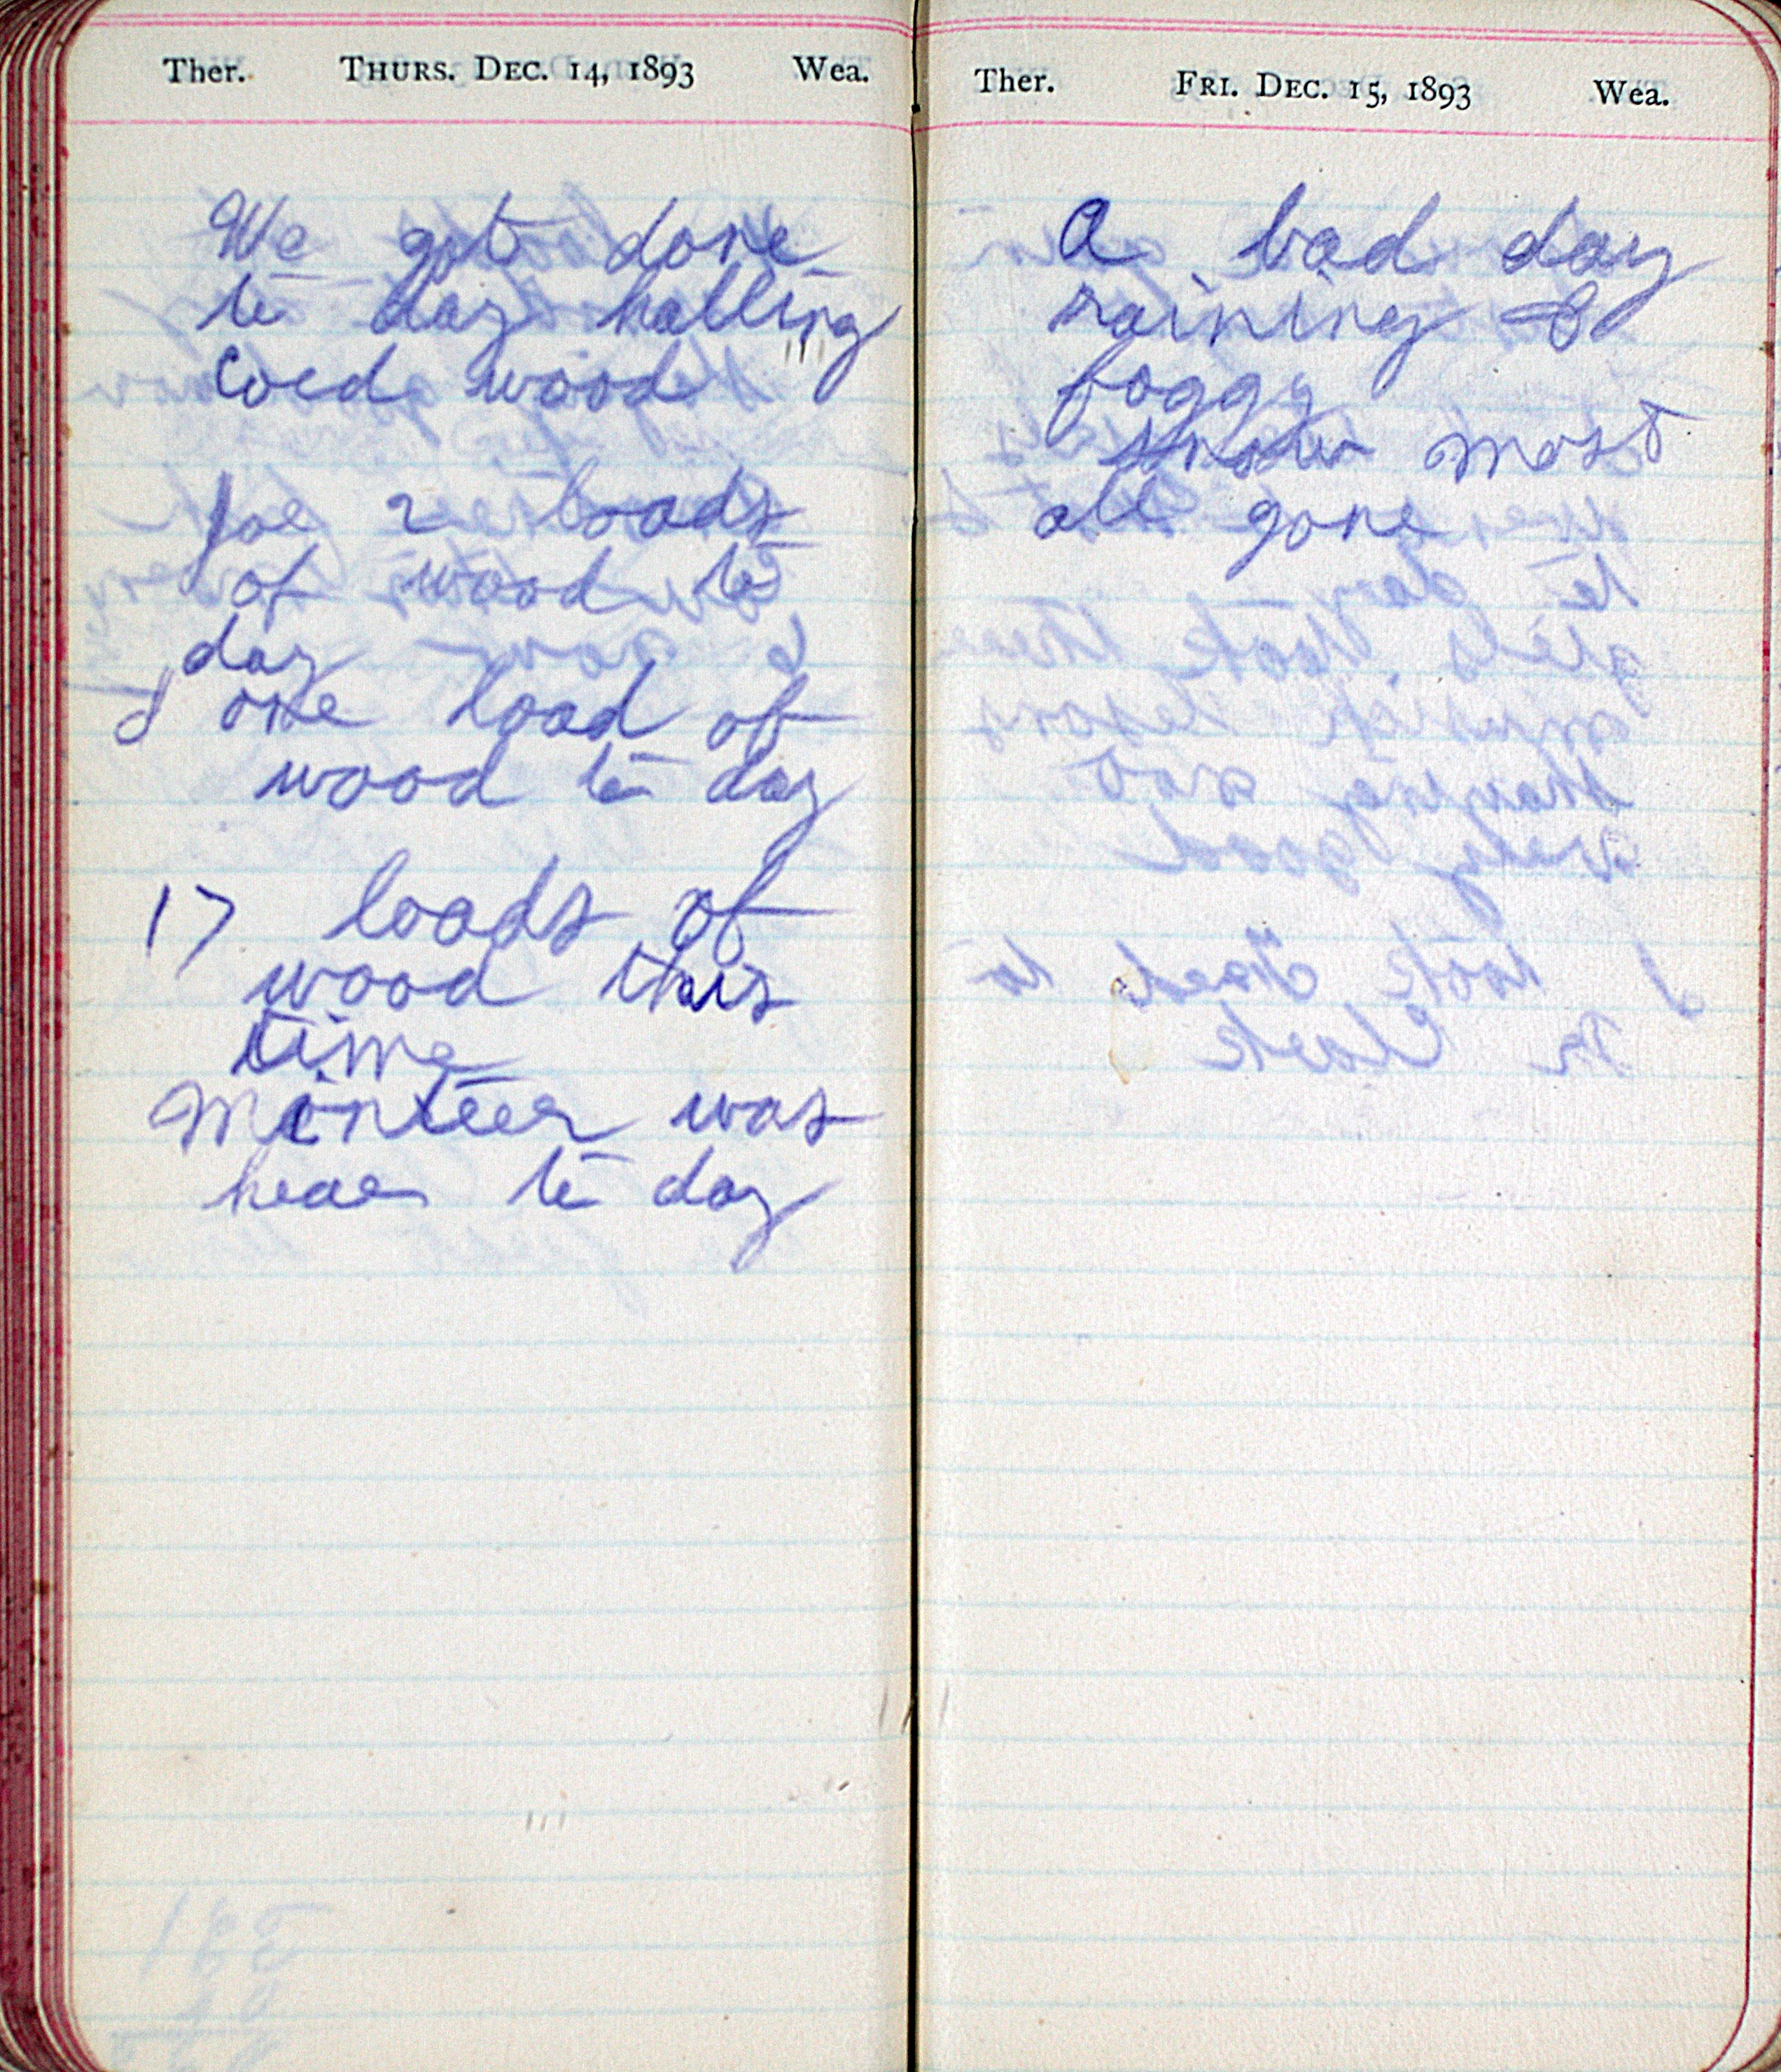 Ther. THURS. DEC. 14, 1893 Wea.
We got done
to day halling
Coed wood
Joe 2 loads
of wood to
day
I one load of
wood to day
17 loads of
wood this
time
Minteer was
hear to day
Ther. FRI. DEC. 15, 1893 Wea.
A bad day
raining &
foggy
snow most
all gone